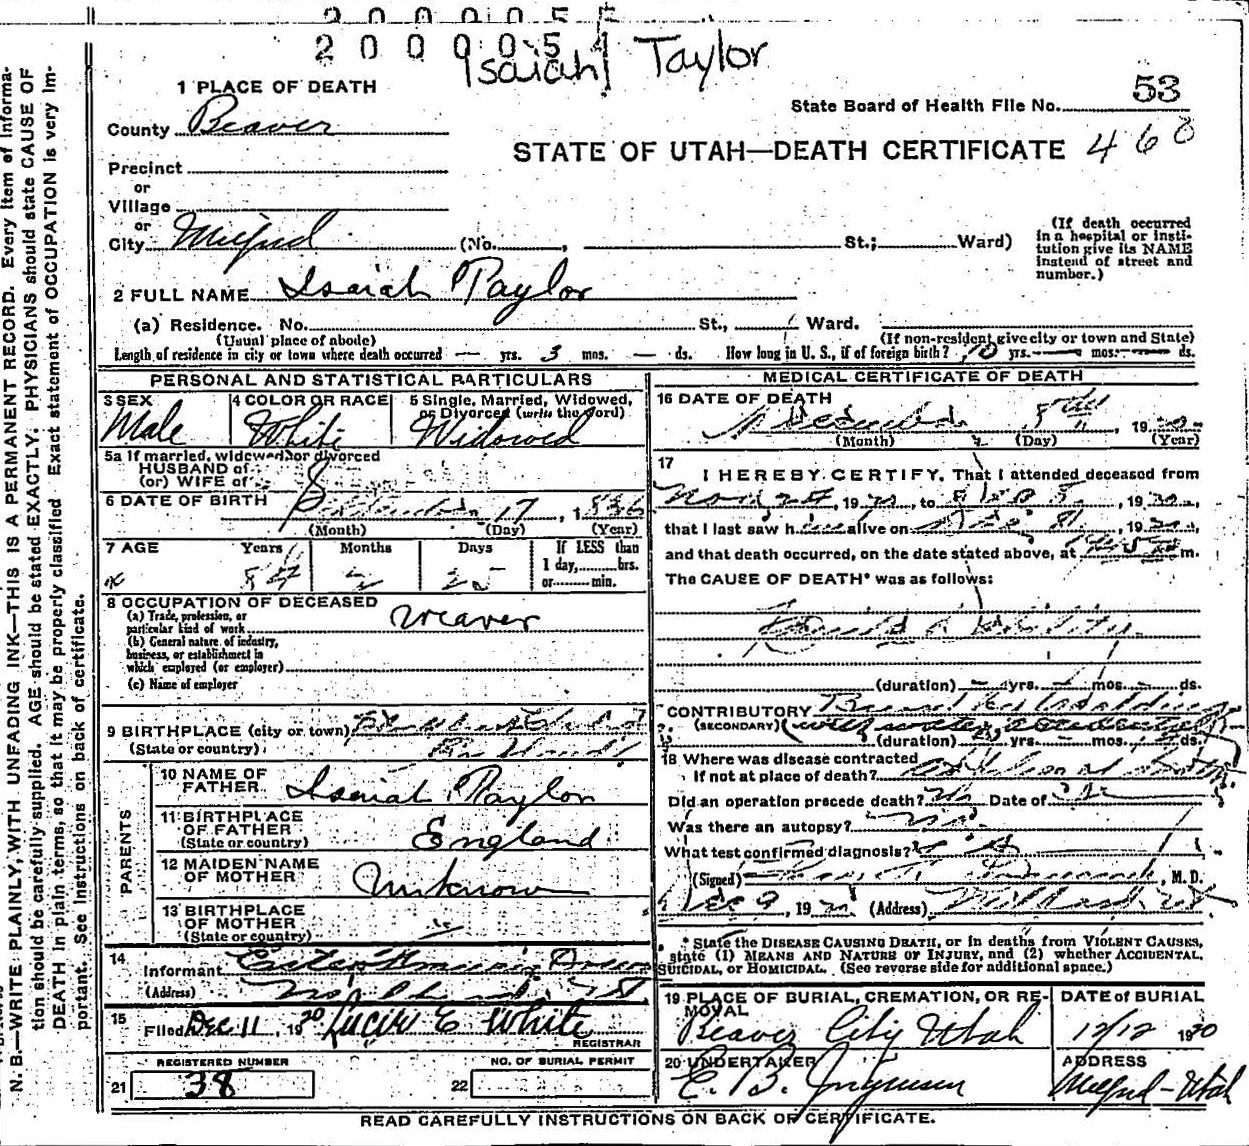 2 0 0 0 0 5
Isaiah Taylor
1 PLACE OF DEATH
State Board of Health File No. 53
County Beaver
STATE OF UTAH—DEATH CERTIFICATE 468
Precinct
or
Village
or
City Milford (No. , St.; Ward)
(If death occurred in a hospital or institution give its NAME instead of street and number.)
2 FULL NAME Isaiah Taylor
(a) Residence. No. St., Ward.
(Usual place of abode) (If non-resident give city or town and State)
Length of residence in city or town where death occurred — yrs. 3 mos. — ds. How long in U. S., if of foreign birth? 70 yrs. — mos. — ds.
PERSONAL AND STATISTICAL PARTICULARS
3 SEX Male
4 COLOR OR RACE White
5 Single, Married, Widowed, or Divorced (write the word) Widowed
5a If married, widowed or divorced
HUSBAND of
(or) WIFE of
6 DATE OF BIRTH September 17, 1836
(Month) (Day) (Year)
7 AGE Years Months Days If LESS than 1 day, hrs. or min.
84
8 OCCUPATION OF DECEASED
(a) Trade, profession, or particular kind of work Weaver
(b) General nature of industry, business, or establishment in which employed (or employer)
(c) Name of employer
9 BIRTHPLACE (city or town)
(State or country) England
PARENTS
10 NAME OF FATHER Isaiah Taylor
11 BIRTHPLACE OF FATHER (State or country) England
12 MAIDEN NAME OF MOTHER Unknown
13 BIRTHPLACE OF MOTHER (State or country)
14 Informant
(Address)
15 Filed Dec 11, 1920 Lucier E White
REGISTRAR
REGISTERED NUMBER
21 38
NO. OF BURIAL PERMIT
22
MEDICAL CERTIFICATE OF DEATH
16 DATE OF DEATH December 8th, 1920
(Month) (Day) (Year)
17 I HEREBY CERTIFY, That I attended deceased from
Nov 24, 1920, to Dec 8, 1920,
that I last saw him alive on Dec 8, 1920,
and that death occurred, on the date stated above, at m.
The CAUSE OF DEATH* was as follows:
Senile Debility
(duration) — yrs. — mos. — ds.
CONTRIBUTORY
(SECONDARY)
(duration) — yrs. — mos. ds.
18 Where was disease contracted
if not at place of death?
Did an operation precede death? No Date of
Was there an autopsy? No
What test confirmed diagnosis?
(Signed) , M. D.
Dec 9, 1920 (Address) Milford Ut
* State the DISEASE CAUSING DEATH, or in deaths from VIOLENT CAUSES, state (1) MEANS AND NATURE OF INJURY, and (2) whether ACCIDENTAL, SUICIDAL, or HOMICIDAL. (See reverse side for additional space.)
19 PLACE OF BURIAL, CREMATION, OR REMOVAL
Beaver City Utah
DATE OF BURIAL
12/12 1920
20 UNDERTAKER
C. B.
ADDRESS
Milford-Utah
READ CAREFULLY INSTRUCTIONS ON BACK OF CERTIFICATE.
N. B.—WRITE PLAINLY, WITH UNFADING INK—THIS IS A PERMANENT RECORD. Every item of information should be carefully supplied. AGE should be stated EXACTLY. PHYSICIANS should state CAUSE OF DEATH in plain terms, so that it may be properly classified. Exact statement of OCCUPATION is very important. See instructions on back of certificate.